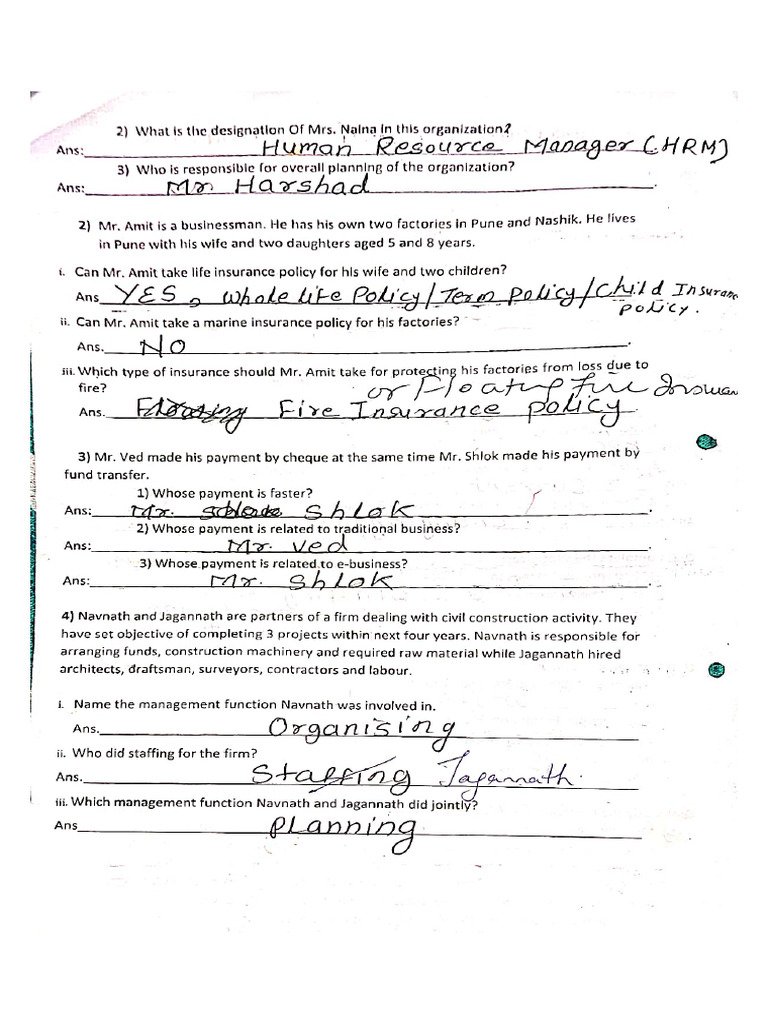 2) What is the designation Of Mrs. Naina in this organization?
Ans: Human Resource Manager (HRM)
3) Who is responsible for overall planning of the organization?
Ans: Mr Harshad.
2) Mr. Amit is a businessman. He has his own two factories in Pune and Nashik. He lives
in Pune with his wife and two daughters aged 5 and 8 years.
i. Can Mr. Amit take life insurance policy for his wife and two children?
Ans YES, Whole life Policy/Term policy/Child Insuranc
policy.
ii. Can Mr. Amit take a marine insurance policy for his factories?
Ans. No.
iii. Which type of insurance should Mr. Amit take for protecting his factories from loss due to
fire?
or Floating fire
Ans. Fire Insurance policy
3) Mr. Ved made his payment by cheque at the same time Mr. Shlok made his payment by
fund transfer.
1) Whose payment is faster?
Ans: Mr. Shlok.
2) Whose payment is related to traditional business?
Ans: Mr. Ved.
3) Whose payment is related to e-business?
Ans: Mr. Shlok.
4) Navnath and Jagannath are partners of a firm dealing with civil construction activity. They
have set objective of completing 3 projects within next four years. Navnath is responsible for
arranging funds, construction machinery and required raw material while Jagannath hired
architects, draftsman, surveyors, contractors and labour.
i. Name the management function Navnath was involved in.
Ans. Organising
ii. Who did staffing for the firm?
Ans. Staffing Jagannath.
iii. Which management function Navnath and Jagannath did jointly?
Ans Planning